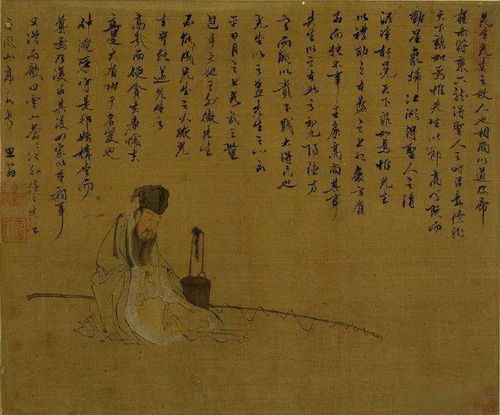 先生光武之故人也相尚以道及帝
握赤符乘六龍得聖人之時臣妾億兆
天下孰加焉惟先生以節高之既而
動星象歸江湖得聖人之清
泥塗軒冕天下孰加焉惟光武
以禮下之在蠱之上九衆方有
為而獨不事王侯高尚其事
先生以之在屯之初九陽德方
亨而能以貴下賤大得民也
光武以之蓋先生之心出
乎日月之上光武之量
包乎天地之外微先生
不能成光武之大微光
武豈能遂先生之
高哉而使貪夫廉懦夫
立是大有功於名教也
仲淹來守是邦始構堂而
奠焉乃復為其後者四家以奉祠事
又從而歌曰雲山蒼蒼江水泱泱先生
之風山高水長